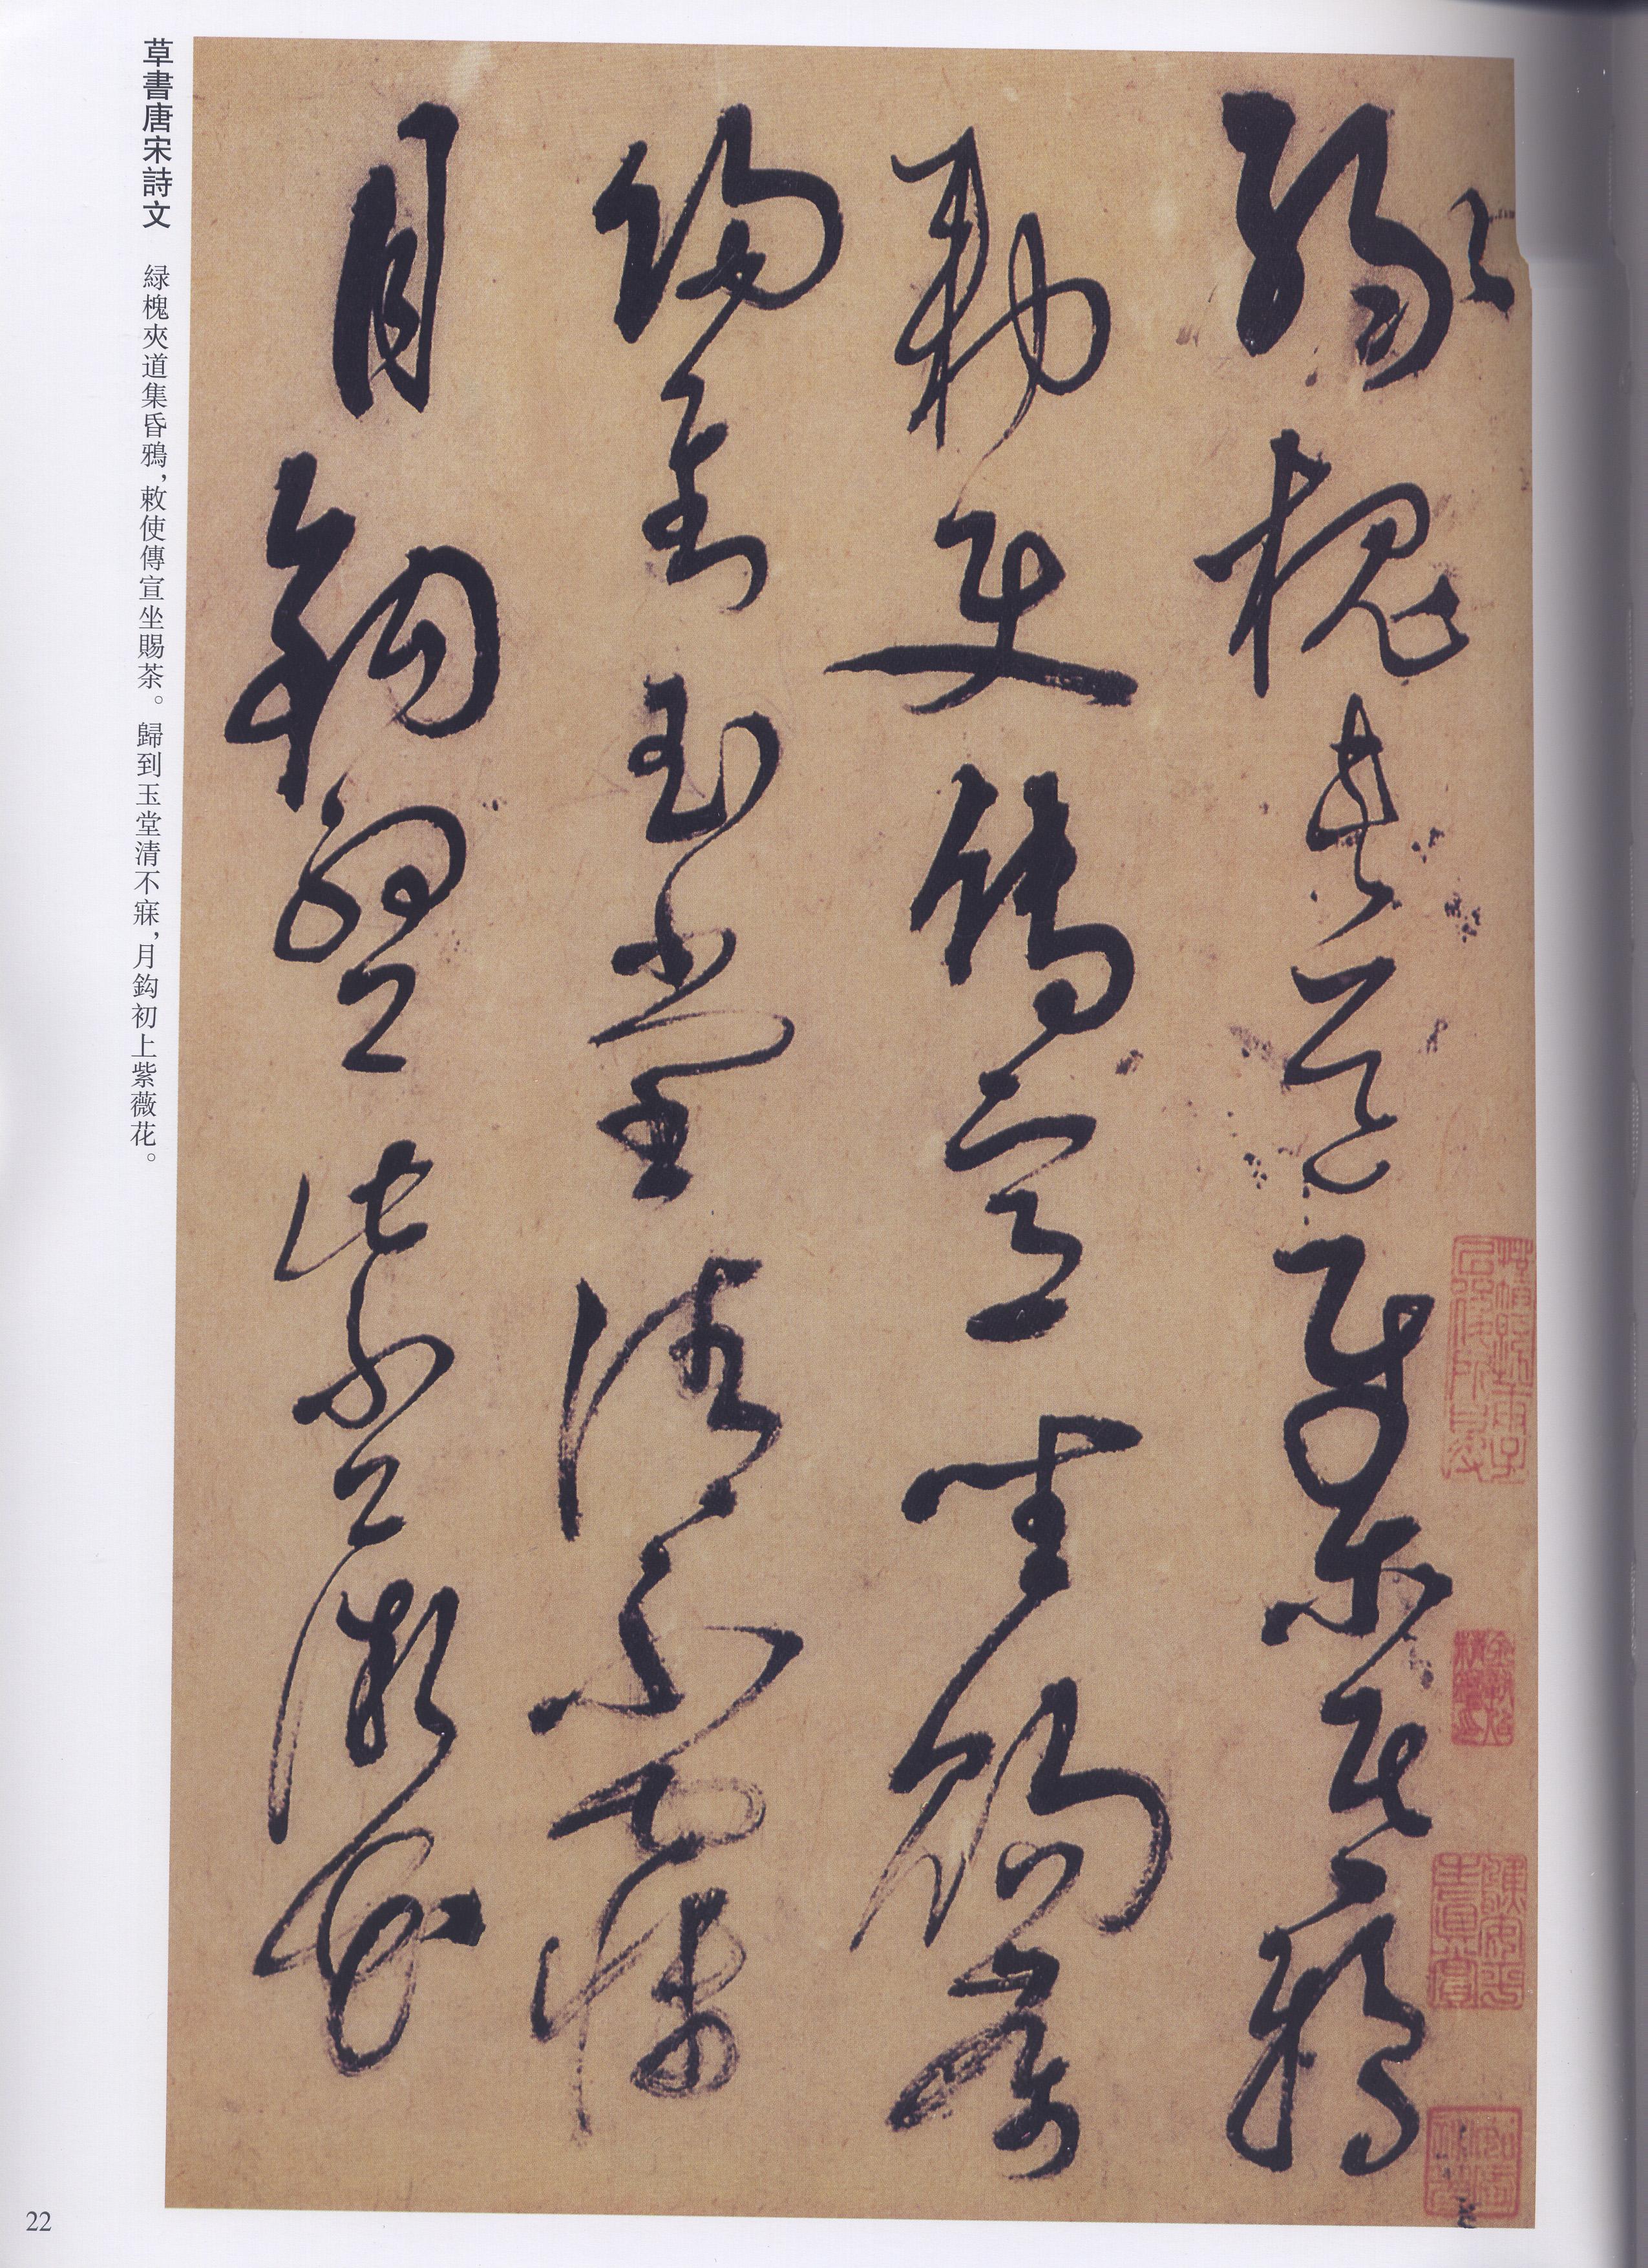 綠槐夾道集昏鴉
敕使傳宣坐賜茶
歸到玉堂清不寐
月鈎初上紫薇花
草書唐宋詩文　緑槐夾道集昏鴉，敕使傳宣坐賜茶。歸到玉堂清不寐，月鈎初上紫薇花。
22